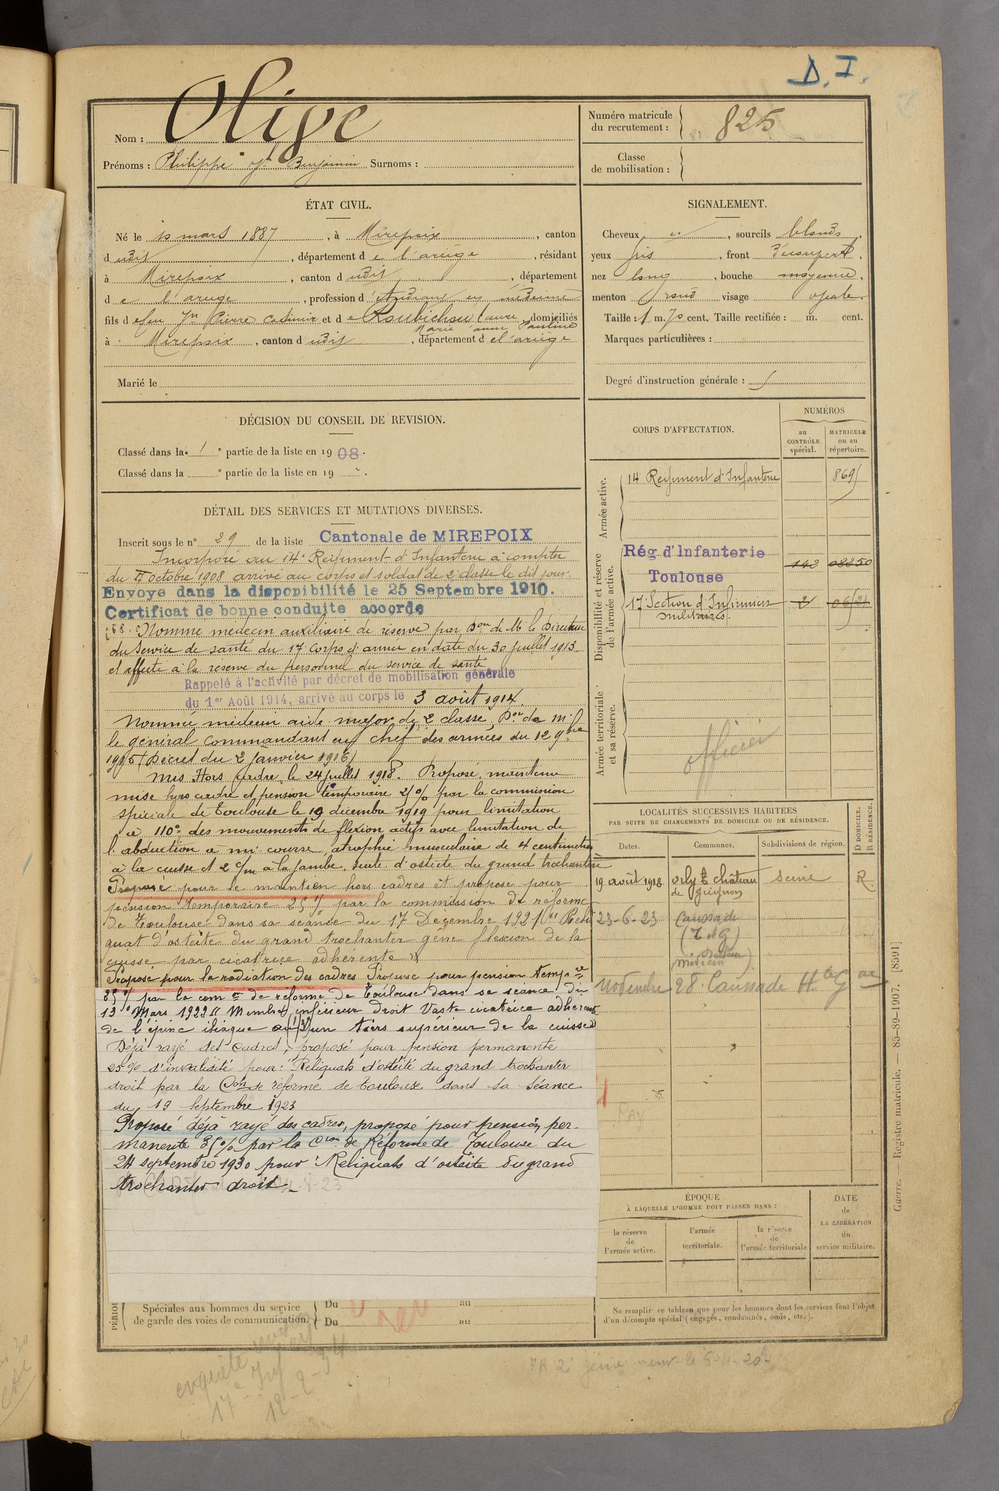 D. I.
Nom : Olive
Prénoms : Philippe Jh Benjamin Surnoms :
Numéro matricule du recrutement : 825
Classe de mobilisation :
ÉTAT CIVIL.
Né le 10 mars 1887, à Mirepoix, canton
d udit, département d e l'ariège, résidant
à Mirepoix, canton d udit, département
d e l'ariege, profession d'Etudiant en médecine
fils d e feu Jn Pierre Casimir et d e Roubichou Laure Marie Anne Pauline, domiciliés
à Mirepoix, canton d udit, département d e l'ariège
Marié le
SIGNALEMENT.
Cheveux, sourcils blonds,
yeux gris, front découvert,
nez long, bouche moyenne,
menton rond visage ovale.
Taille : 1 m. 70 cent. Taille rectifiée : m. cent.
Marques particulières :
Degré d'instruction générale : 5
DÉCISION DU CONSEIL DE REVISION.
Classé dans la 1e partie de la liste en 1908.
Classé dans la e partie de la liste en 19
CORPS D'AFFECTATION.
NUMÉROS
au CONTRÔLE spécial.
MATRICULE ou au répertoire.
Armée active.
14 Regiment d'Infanterie 869
Disponibilité et réserve de l'armée active.
Rég. d'Infanterie
Toulouse
143 08350
17 Section d'Infirmiers militaires
Armée territoriale et sa réserve.
officier
DÉTAIL DES SERVICES ET MUTATIONS DIVERSES.
Inscrit sous le n° 29 de la liste Cantonale de MIREPOIX
Incorporé au 14e Régiment d'Infanterie à compter
du 7 octobre 1908 arrivé au corps et soldat de 2e classe le dit jour.
Envoyé dans la disponibilité le 25 Septembre 1910.
Certificat de bonne conduite accordé
Nommé médecin auxiliaire de réserve par Don de Mr le Directeur
du Service de santé du 17 Corps d'armée en date du 30 juillet 1913
et affecté à la réserve du personnel du service de santé
Rappelé à l'activité par décret de mobilisation générale
du 1er Août 1914, arrivé au corps le 3 août 1914.
Nommé médecin aide major de 2 classe, Don de Mr
le général Commandant en chef des armées du 12 9bre
1915 (Décret du 2 Janvier 1916)
Mis Hors Cadre le 24 juillet 1918. Proposé maintenu
mise hors cadre et pension temporaire par la commission
spéciale de Toulouse le 19 décembre 1919 pour limitation
à 110° des mouvements de flexion actifs avec limitation de
l'abduction à mi course, atrophie musculaire de 4 centimètres
à la cuisse et 2 c/m à la jambe, suite d'ostéite du grand trochanter
Proposé pour le maintien hors cadres et proposé pour
pension temporaire 25 % par la commission de réforme
de Toulouse dans sa séance du 17 Décembre 1921 Reli
quat d'ostéite du grand trochanter gêne flexion de la
cuisse par cicatrice adhérente
Proposé pour la radiation des cadres Proposé pour pension temp re
25 % par la com on de réforme de Toulouse dans sa séance du
13 Mars 1922 Membre inférieur droit Vaste cicatrice adhérente
de l'épine iliaque au 1/3 un tiers supérieur de la cuisse
Déjà rayé des cadres, proposé pour pension permanente
25 % d'invalidité pour : Reliquats d'ostéité du grand trochanter
droit par la Con de réforme de Toulouse dans sa séance
du 19 septembre 1923
Proposé déjà rayé des cadres, proposé pour pension per-
manente 35 % par la Cion de Réforme de Toulouse du
24 septembre 1930 pour : Reliquats d'ostéite du grand
trochanter droit.
LOCALITÉS SUCCESSIVES HABITÉES
PAR SUITE DE CHANGEMENTS DE DOMICILE OU DE RÉSIDENCE.
Dates. Communes. Subdivisions de région. D DOMICILE. R RÉSIDENCE.
19 août 1918 Orly château de Grignon Seine R.
23-6-23 Caussade (T et G)
Novembre 28 Caussade
ÉPOQUE
À LAQUELLE L'HOMME DOIT PASSER DANS :
la réserve de l'armée active.
l'armée territoriale.
la réserve de l'armée territoriale
DATE de LA LIBÉRATION du service militaire.
Ne remplir ce tableau que pour les hommes dont les services font l'objet
d'un décompte spécial (engagés, condamnés, omis, etc.).
PÉRIO
Spéciales aux hommes du service
de garde des voies de communication.
Du au
Du au
Guerre. — Registre matricule. — 85-89-1907. [8591]
enquête
17e